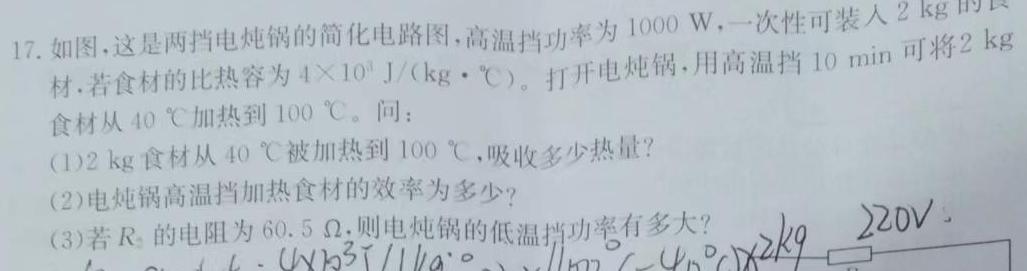 17. 如图,这是两挡电炖锅的简化电路图,高温挡功率为 1000 W,一次性可装入 2 kg 的食
材,若食材的比热容为 4×10³ J/(kg·℃)。打开电炖锅,用高温挡 10 min 可将2 kg
食材从 40 ℃加热到 100 ℃。问:
(1)2 kg 食材从 40 ℃被加热到 100 ℃,吸收多少热量?
(2)电炖锅高温挡加热食材的效率为多少?
(3)若 R₂ 的电阻为 60.5 Ω,则电炖锅的低温挡功率有多大?
220V
4×10³J/(kg·℃)×(100℃-40℃)×2kg